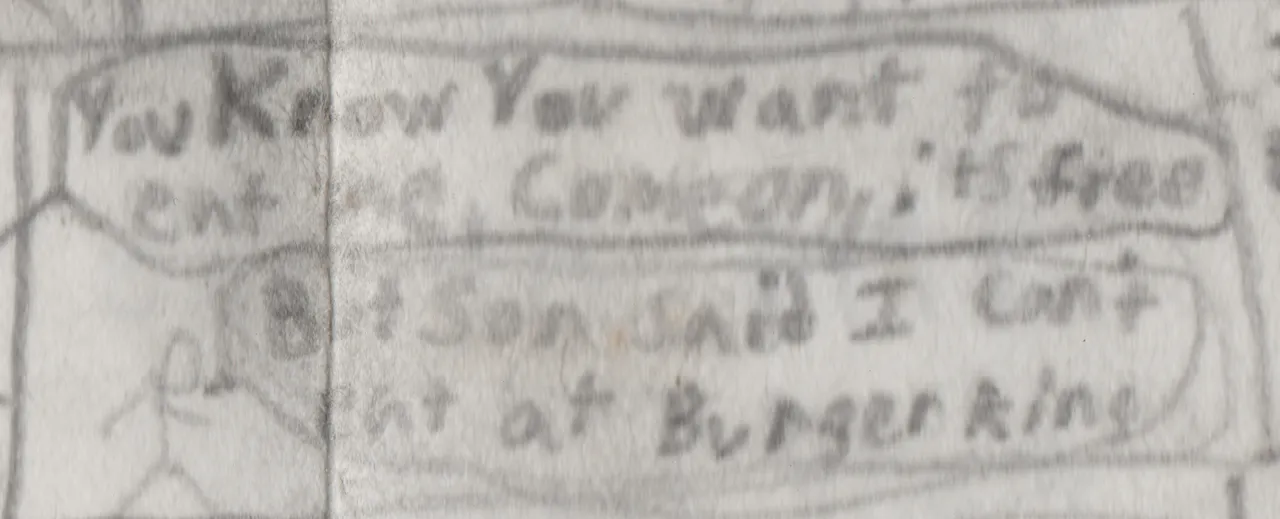 You Know You want to
ent me. Comeon, it's free
But Son said I cant
ent at Burger king